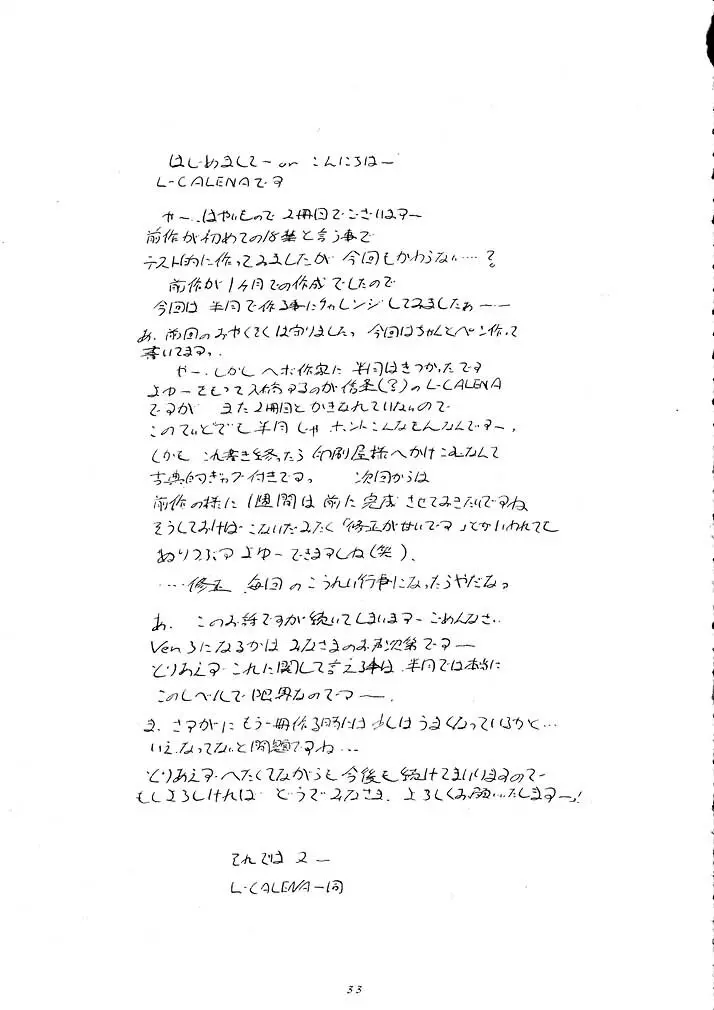 はじめましてー or こんにちはー
L-CALENAです
やー、はやいもので 2冊目でございますー
前作が初めての18禁と言う事で
テスト的に作ってみましたが 今回もかわらない……？
前作が1ヶ月での作成でしたので
今回は 半月で作る事にチャレンジしてみましたぁーー
あ、前回のみやくそくは守りましたっ 今回はちゃんとペン作って
書いてますっ
やー、しかし ヘボ作家に 半月はきつかったです
よゆーをもって入稿するのが信条(？)の L-CALENA
ですが まだ2冊目とかきなれていないので
このていどでも半月じゃ ホントこんなもんなんですー、
しかも これ書き終ったら 印刷屋様へかけこむなんて
古典的ギャグ付きです。 次回からは
前作の様に 1週間は前に 完成させておきたいですね
そうしておけば こないだみたく「修正が甘いです」とかいわれても
ぬりつぶす よゆーできますしね(笑)、
……修正 毎回のこうれい行事になったらやだなっ
あ、 このお話ですが続いてしまいますー ごめんなさい
Ver 3になるかは みなさまのお声次第ですー
とりあえず これに関して言える事は 半月では本当に
このレベルで限界なのですー、
ま、さすがに もう一冊作る時には 少しはうまくなっているかと…
いえ、なってないと問題ですね…
とりあえず へたくてながらも 今後も 続けてまいりますので
もしよろしければ どうぞみなさま、よろしくお願いいたしますーっ！
それでは 2ー
L-CALENA一同
33